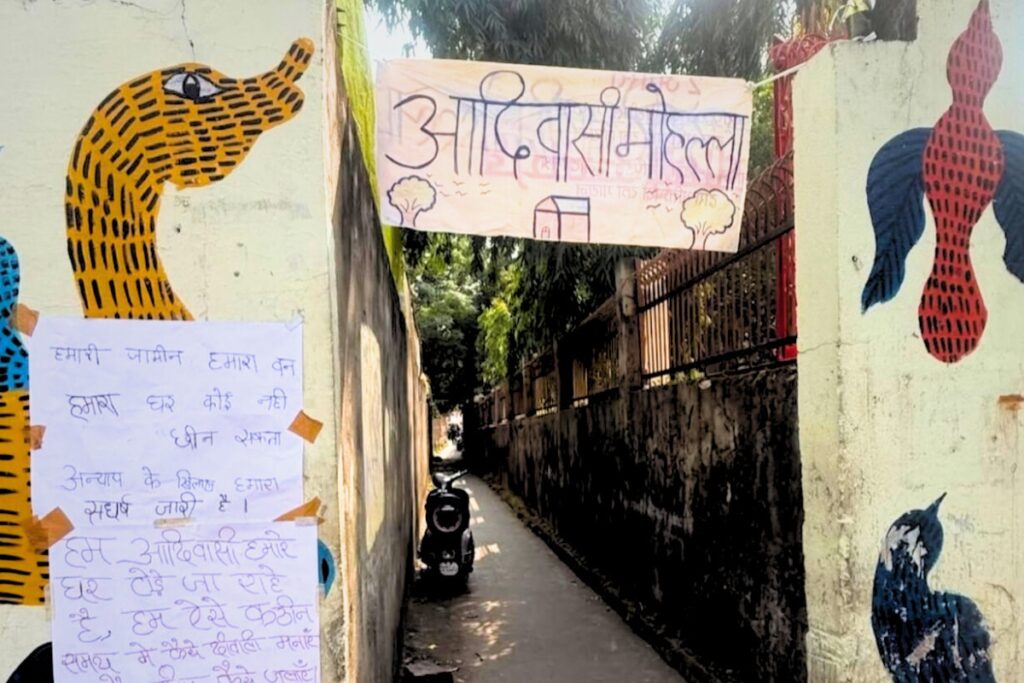 आदिवासी मोहल्ला
हमारी जामीन हमारा वन
हमारा घर कोई नही
छीन सकता
अन्याप के खिलाफ हमारा
संघर्ष जारी है ।
हम आदिवासी हमारे
घर तोड़े जा राहे
है, हम ऐसे कठीन
समय मे कैसे दीवाली मनाएँ
कैसे जलाएँ